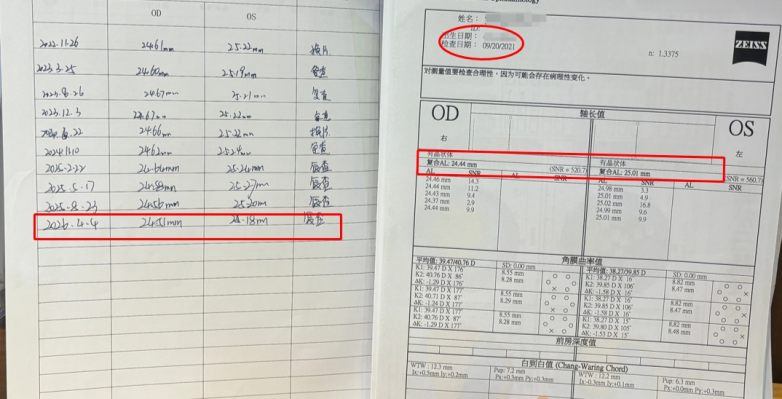 OD OS
2022.11.26 24.61mm 25.22mm 换片
2023.3.25 24.60mm 25.19mm 复查
2023.8.26 24.67mm 25.21mm 复查
2023.12.3 24.67mm 25.22mm 复查
6.22 24.66mm 25.22mm 换片
2024.11.10 24.62mm 25.24mm 复查
2025.2.22 25.24mm 复查
2025.5.17 24.58mm 25.27mm 复查
2025.8.23 24.56mm 25.30m 复查
2026.4.4 24.51mm 25.18m 复查
姓名：
出生日期：
检查日期： 09/20/2021
n: 1.3375
ZEISS
对测量值要检查合理性，因为可能会存在病理性变化。
OD 轴长值 OS
右 左
有晶状体 有晶状体
复合AL: 24.44 mm (SNR = 520.7) 复合AL: 25.01 mm (SNR = 560.7)
AL SNR AL SNR AL SNR AL
24.46 mm 14.3 24.98 mm 5.3
24.44 mm 11.2 25.01 mm 4.9
24.43 mm 9.4 25.02 mm 16.8
24.37 mm 2.9 24.99 mm 9.6
24.44 mm 9.9 25.01 mm 9.9
角膜曲率值
平均值: 39.47/40.76 D SD: 0.00 mm 平均值: 38.27/39.85 D SD: 0.00 mm
K1: 39.47 D X 176° 8.55 mm K1: 38.27 D X 16° 8.82 mm
K2: 40.76 D X 86° 8.28 mm K2: 39.85 D X 106° 8.47 mm
ΔK: -1.29 D X 176° ΔK: -1.58 D X 16°
K1: 39.47 D X 177° 8.55 mm K1: 38.27 D X 16° 8.82 mm
K2: 40.71 D X 87° 8.29 mm K2: 39.85 D X 106° 8.47 mm
ΔK: -1.24 D X 177° ΔK: -1.58 D X 16°
K1: 39.47 D X 177° 8.55 mm K1: 38.27 D X 15° 8.82 mm
K2: 40.76 D X 87° 8.28 mm K2: 39.80 D X 105° 8.48 mm
ΔK: -1.29 D X 177° ΔK: -1.53 D X 15°
前房深度值
白到白值 (Chang-Waring Chord)
WTW : 12.3 mm Pup: 7.2 mm WTW : 12.2 mm Pup: 6.3 mm
Ix:+0.5mm Iy:+0.2mm Px:+0.3mm Py:+0.3mm Ix:-0.3mm Iy:+0.1mm Px:+0.0mm Py:+0.3mm